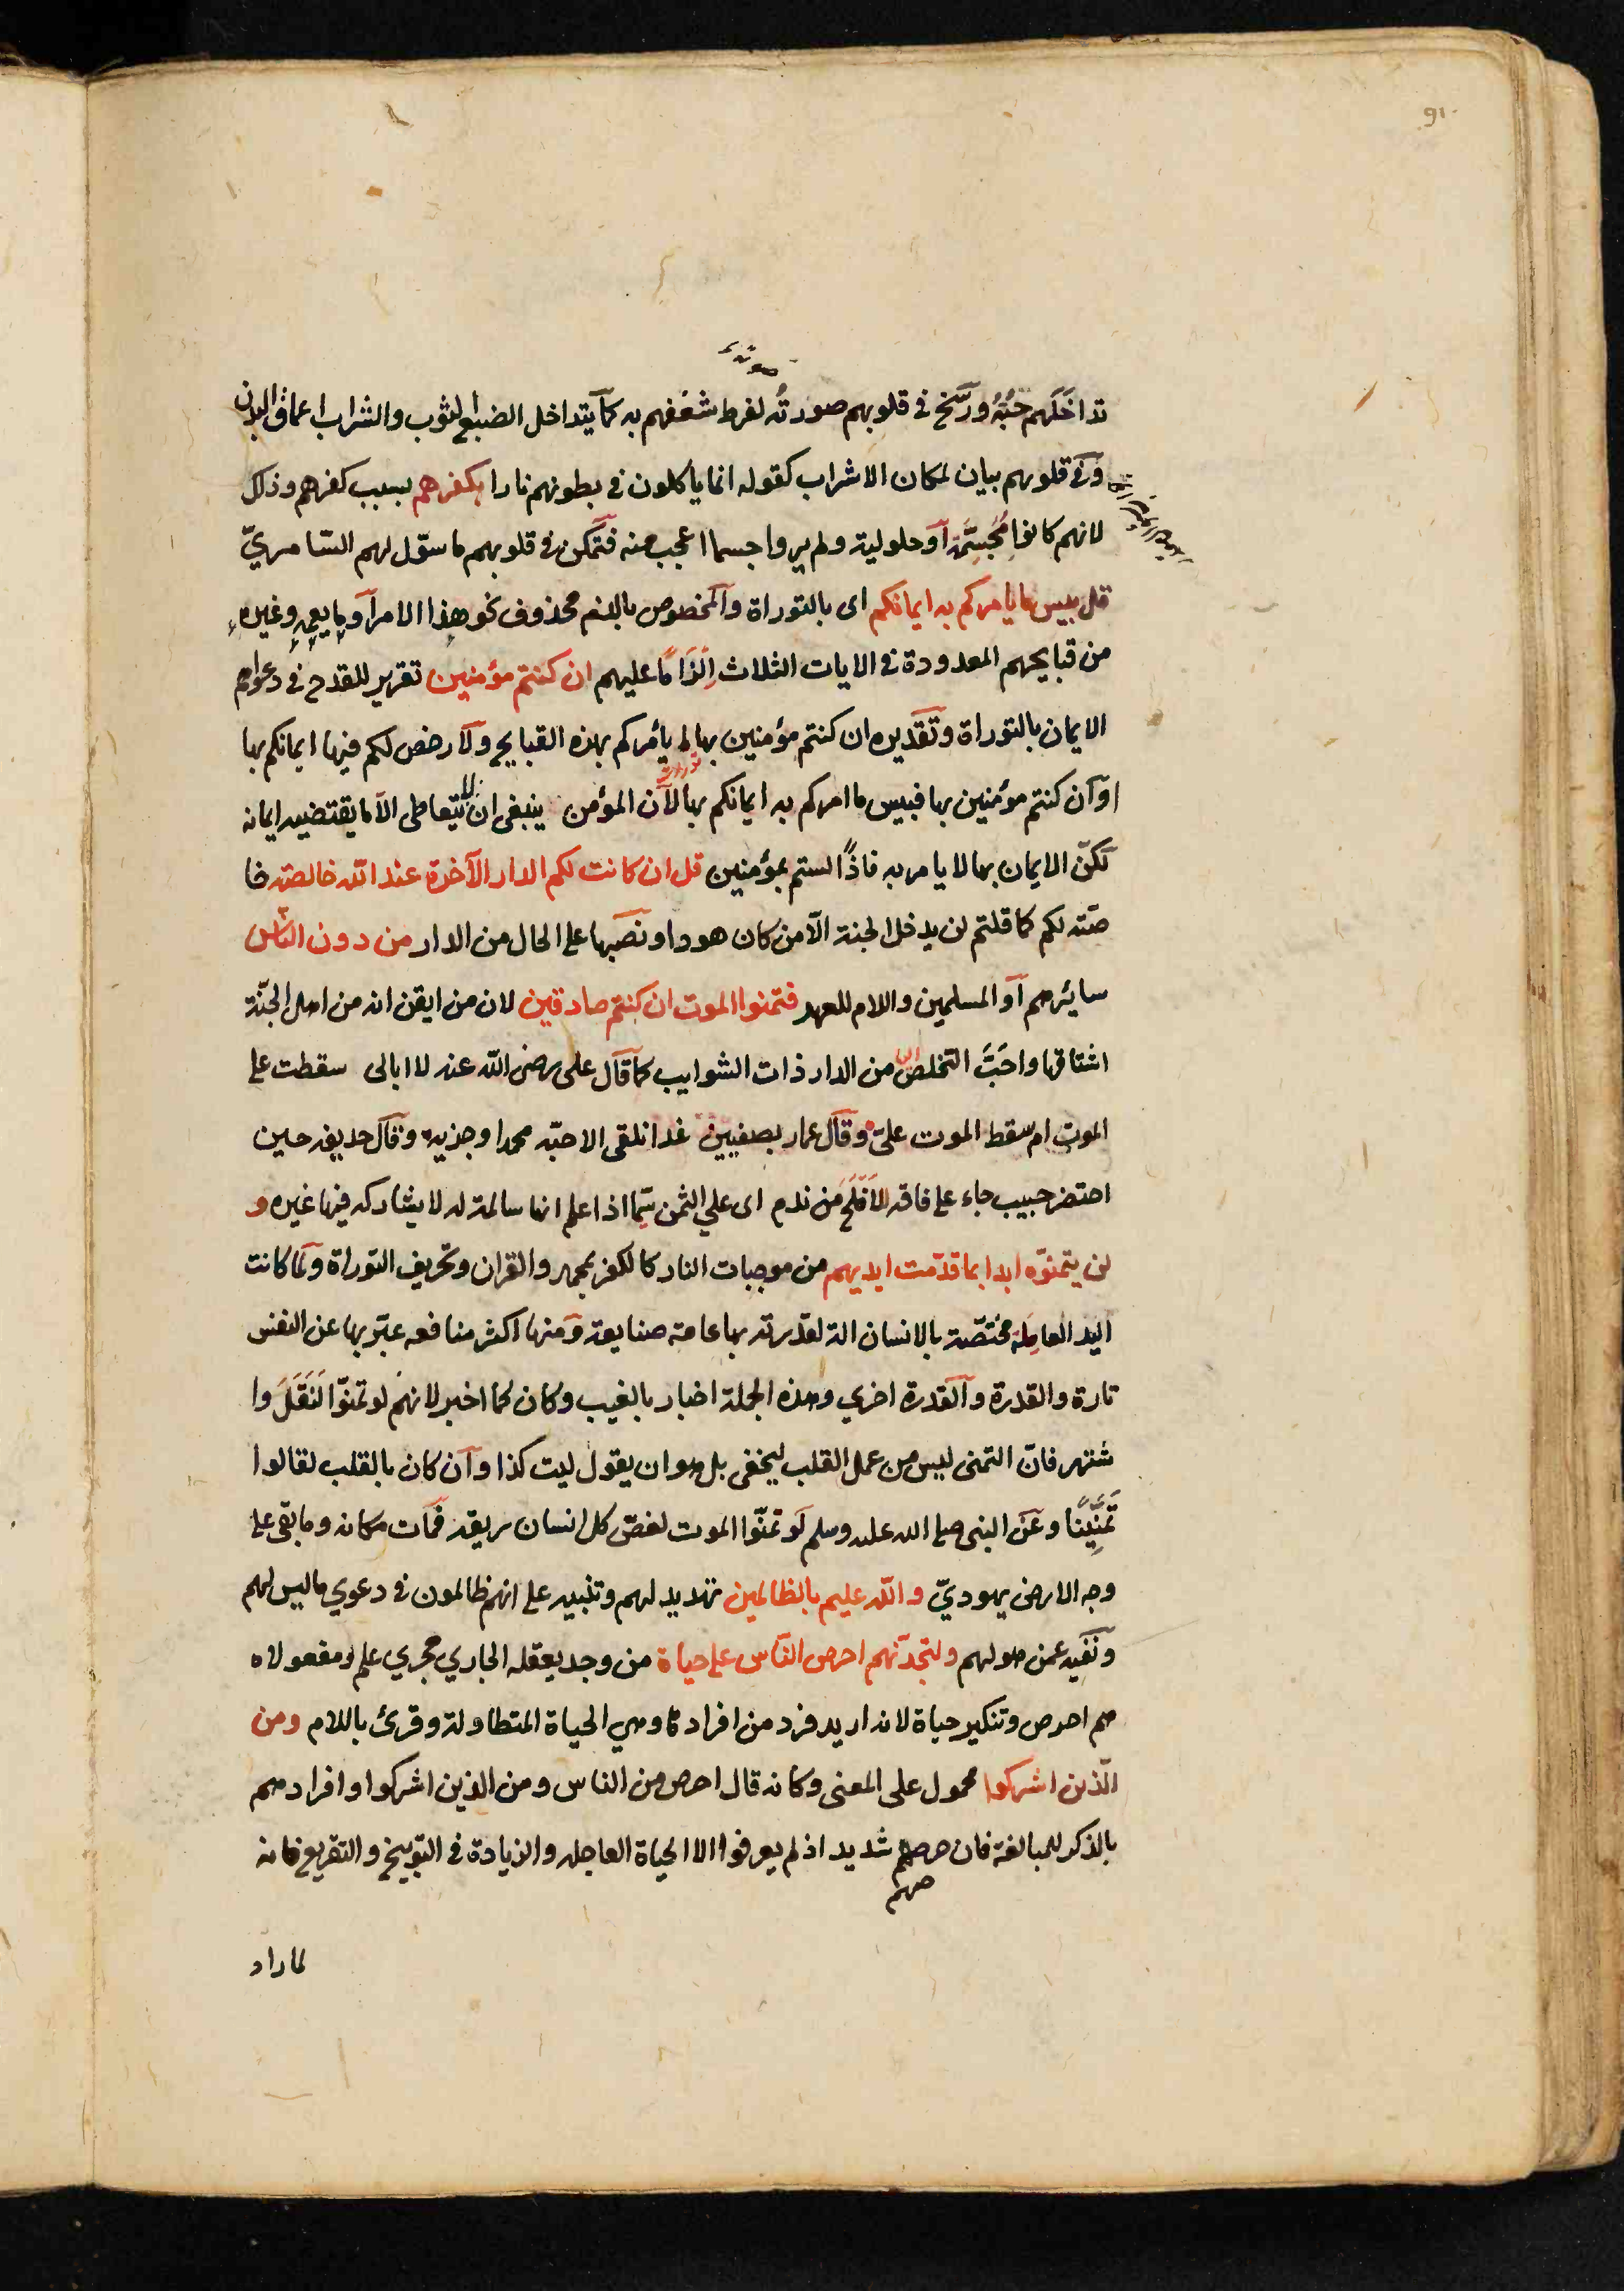 91
صورته
تداخَلَهم حُبُّهُ ورَسَخ فى قلوبهم صورتُه لفرط شغفهم به كما يتداخل الضبغ الثوب والشراب اعماق البدن
وفى قلوبهم بيان لمكان الاشراب كقوله انما ياكلون فى بطونهم نارا بكفرهم بسبب كفرهم وذلك
لانهم كانوا مُجَسِّمَة او حلولية ولم يروا جسما اعجب منه فتمكن فى قلوبهم ما سوّل لهم السّامريّ
قل بيس ما يامركم به ايمانكم اى بالتوراة والمخصوص بالذم محذوف نحو هذا الامر او ما يعمه وغيره
من قبايحهم المعدودة فى الايات الثلاث اِلزَامًا عليهم ان كنتم مؤمنين تقرير للقدح فى دعواهم
الايمان بالتوراة وتقديره ان كنتم مؤمنين بها لم يأمركم بهذه القبايح ولا رخص لكم فيها ايمانكم بها
او ان كنتم مؤمنين بها فبيس ما امركم به ايمانكم بها لان المؤمن ينبغى ان لا يتعاطى الا ما يقتضيه ايمانه
لكنّ الايمان بها لا يامر به فاذًا لستم بمؤمنين قل ان كانت لكم الدار الآخرة عند الله خالصة خا
صّة لكم كما قلتم لن يدخل الجنة الّا من كان هودا ونصبها على الحال من الدار من دون النّاس
سايرهم او المسلمين واللام للعهد فتمنوا الموت ان كنتم صادقين لان من ايقن انه من اهل الجنّة
اشتاقها واحَبَّ التخلص من الدار ذات الشوايب كما قال على رضى الله عنه لا ابالى سقطت على
الموت ام سقط الموت علىّ وقال عمار بصفيين غدا نلقى الاحبّه محمدا وحزبه وقال حذيفه حين
احتضر حبيب جاء على فاقه لا افلَحَ مَن ندم اى على الثمن سيّما اذا علم انها سالمة له لا يشاركه فيها غيره و
لن يتمنوّه ابدا بما قدّمت ايديهم من موجبات النار كالكفر بمحمد والقران وتحريف التوراة ولما كانت
اليد العامِلة مختصّة بالانسان الة لقدرته بها عامة صنايعه ومنها اكثر منافعه عبّر بها عن النفس
تارة والقدرة والقدرة اخري وهذه الجملة اخبار بالغيب وكان كما اخبر لانهم لو تمنّوا لَنَقَلَ وا
شتهر فانّ التمنى ليس من عمل القلب ليخفى بل هو ان يقول ليت كذا وان كان بالقلب لقالوا
تمَنَّينا وعَن النبى صلى الله عليه وسلم لَو تمنّوا الموت لغصّ كل انسان بريقه فمات مكانه وما بقى على
وجه الارض يهوديّ والله عليم بالظالمين تهديد لهم وتنبيه على انهم ظالمون فى دعوي ما ليس لهم
ونفيه عمن هو لهم ولتجدنهم احرص النّاس على حياة من وجد بعقله الجاري مجري علم ومفعولاه
هم احرص وتنكير حياة لانه اريد فرد من افرادها وهي الحياة المتطاولة وقرئ باللام ومن
الّذين اشركوا محمول على المعنى وكانه قال احرص من الناس ومن الذين اشركوا وافرادهم
بالذكر للمبالغة فان حرصهم شديد اذ لم يعرفوا الا الحياة العاجله والزيادة فى التوبيخ والتقريع فانه
صهم
لما زاد